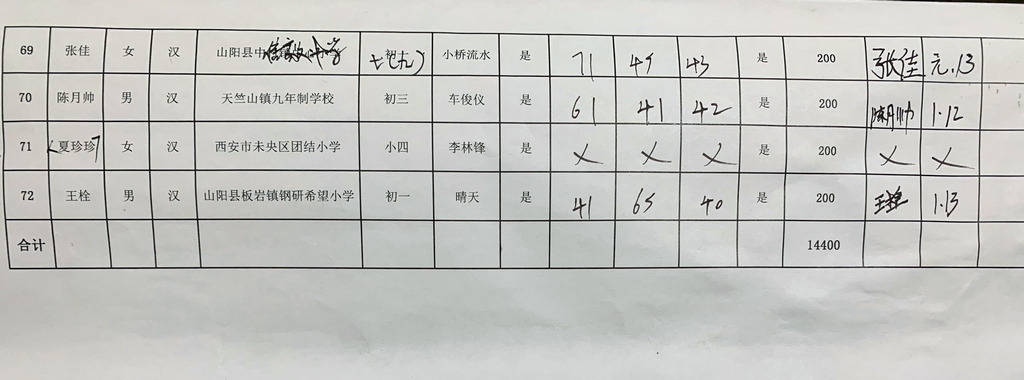 69 张佳 女 汉 山阳县中 小学 七(九) 小桥流水 是 71 45 43 是 200 张佳 元.13
70 陈月帅 男 汉 天竺山镇九年制学校 初三 车俊仪 是 61 41 42 是 200 陈月帅 1.12
71 夏珍珍 女 汉 西安市未央区团结小学 小四 李林锋 是 × × × 是 200 × ×
72 王栓 男 汉 山阳县板岩镇钢研希望小学 初一 晴天 是 41 65 40 是 200 1.13
合计 14400